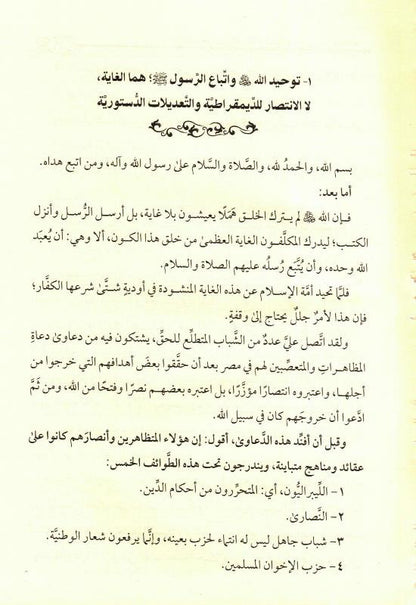 ١- توحيد الله ﷻ واتّباع الرّسول ﷺ؛ هما الغاية،
لا الانتصار للدِّيمقراطيَّة والتَّعديلات الدُّستوريَّة
بسم الله، والحمدُ لله، والصَّلاة والسَّلام علىٰ رسول الله وآله، ومن اتبع هداه.
أما بعد:
فـإن الله ﷻ لم يـترك الخلـق هَمَلًا يعيشـون بلا غاية، بل أرسـل الرُّسل وأنزل
الكتب؛ ليدرك المكلَّفون الغاية العظمىٰ من خلق هذا الكون، ألا وهي: أن يُعبَد
الله وحده، وأن يُتَّبَع رُسلُه عليهم الصلاة والسلام.
فلمَّا تحيد أمَّة الإسلام عن هذه الغاية المنشـودة في أوديةٍ شـتَّىٰ شرعها الكفَّار؛
فإن هذا لأمرٌ جللٌ يحتاج إلىٰ وقفةٍ.
ولقد اتَّصل عليَّ عددٌ من الشَّباب المتطلِّع للحقِّ، يشتكون فيه من دعاوىٰ دعاةِ
المظاهـراتِ والمتعصِّبين لهم في مصر بعد أن حقَّقوا بعضَ أهدافهم التي خرجوا من
أجلهـا، واعتبروه انتصارًا مؤزَّرًا، بل اعتبره بعضهـم نصرًا وفتحًا من الله، ومن ثَمَّ
ادَّعوا أن خروجَهم كان في سبيل الله.
وقبل أن أفنِّد هذه الدَّعاوىٰ، أقول: إن هؤلاء المتظاهرين وأنصارَهم كانوا علىٰ
عقائد ومناهج متباينة، ويندرجون تحت هذه الطَّوائف الخمس:
١- اللِّيبراليُّون، أي: المتحرِّرون من أحكام الدِّين.
٢- النَّصارىٰ.
٣- شباب جاهل ليس له انتماء لحزب بعينه، وإنَّما يرفعون شعار الوطنيَّة.
٤- حزب الإخوان المسلمين.